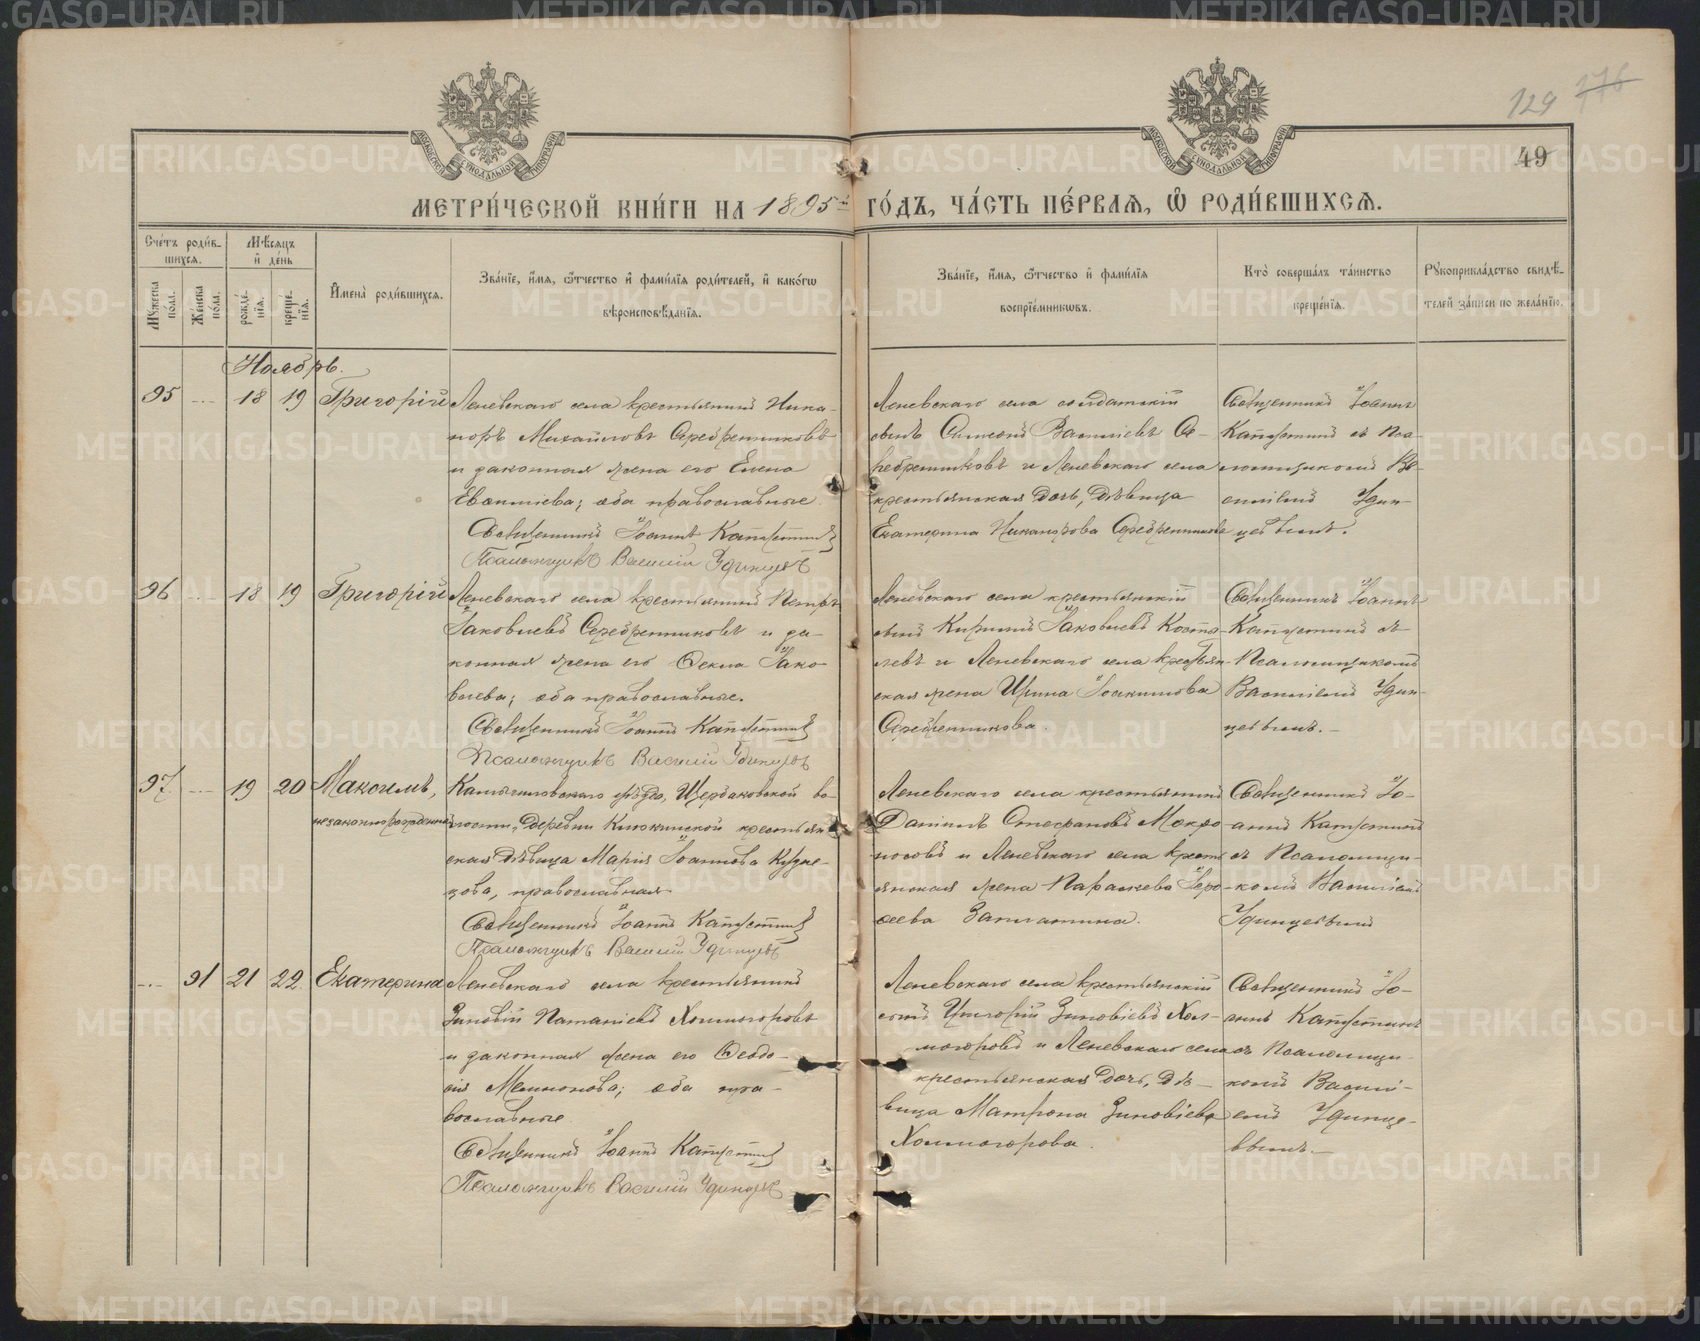 129 176
49
МЕТРИ́ЧЕСКОЙ КНИ́ГИ НА 1895й ГО́ДЪ, ЧА́СТЬ ПЕ́РВАѦ, Ѡ РОДИ́ВШИХСѦ.
Сче́тъ роди́в-
шихсѧ.
Мѣ́сѧцъ
и҆ де́нь
Мꙋ́жеска по́ла.
Же́нска по́ла.
рожде́-
нїѧ.
креще́-
нїѧ.
И҆мена̀ роди́вшихсѧ.
Зва́нїе, и҆́мѧ, ѻ҆́тчество и҆ фами́лїѧ роди́телей, и҆ како́гѡ
вѣроисповѣ́данїѧ.
Зва́нїе, и҆́мѧ, ѻ҆́тчество и҆ фами́лїѧ
воспрїе́мникѡвъ.
Кто̀ соверша́лъ та́инство
креще́нїѧ.
Рꙋкоприкла́дство свидѣ́-
телей за́писи по жела́нїю.
Ноябрь.
95 18 19 Григорій
Леневскаго села крестьянинъ Ника-
норъ Михайловъ Серебренниковъ
и законная жена его Елена
Евфиміева; оба православные
Священникъ Іоаннъ Капустинъ
Псаломщикъ Василій Удинцевъ
Леневскаго села солдатскій
сынъ Симеонъ Васильевъ Се-
ребренниковъ и Леневскаго села
крестьянская дочь, дѣвица
Екатерина Никанорова Серебренникова
Священникъ Іоаннъ
Капустинъ съ Пса-
ломщикомъ Ва-
силіемъ Удин-
цевымъ.
96 18 19 Григорій
Леневскаго села крестьянинъ Петръ
Іаковлевъ Серебренниковъ и за-
конная жена его Ѳекла Іако-
влева; оба православные.
Священникъ Іоаннъ Капустинъ
Псаломщикъ Василій Удинцевъ
Леневскаго села крестьянскій
сынъ Кириллъ Іаковлевъ
и Леневскаго села крестьян-
ская жена Ирина Іоакимова
Серебренникова.
Священникъ Іоаннъ
Капустинъ съ
Псаломщикомъ
Василіемъ Удин-
цевымъ.
97 19 20 Максимъ,
незаконнорожденный
Камышловскаго уѣзда, Щербаковской во-
лости, деревни крестьян-
ская дѣвица Марія Іоаннова Кузне-
цова, православная
Священникъ Іоаннъ Капустинъ
Псаломщикъ Василій Удинцевъ
Леневскаго села крестьянинъ
Даніилъ Стефановъ Мокро-
носовъ и Леневскаго села кресть-
янская жена Параскева
Заплатина.
Священникъ Іо-
аннъ Капустинъ
съ Псаломщи-
комъ Василіемъ
Удинцевымъ
91 21 22 Екатерина
Леневскаго села крестьянинъ
Зиновій Потапіевъ Холмогоровъ
и законная жена его Ѳеодо-
сія Мемнонова; оба пра-
вославные
Священникъ Іоаннъ Капустинъ
Псаломщикъ Василій Удинцевъ
Леневскаго села крестьянскій
сынъ Григорій Зиновіевъ Хол-
могоровъ и Леневскаго села
крестьянская дочь, дѣ-
вица Матрона Зиновіева
Холмогорова.
Священникъ Іо-
аннъ Капустинъ
съ Псаломщи-
комъ Васили-
емъ Удинце-
вымъ.